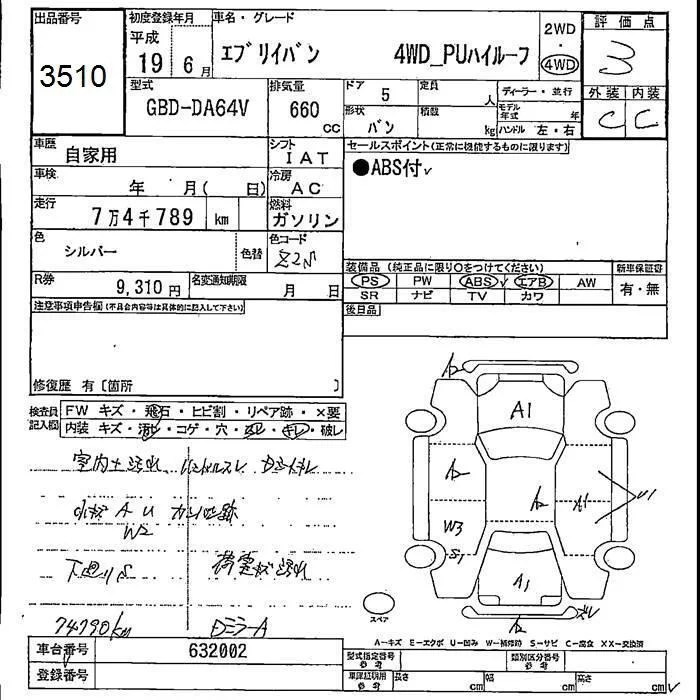 出品番号
3510
初度登録年月
平成
19 6月
車名・グレード
エブリイバン 4WD_PUハイルーフ
2WD
・
4WD
評価点
3
外装 内装
C C
型式
GBD-DA64V
排気量
660
CC
ドア 5
形状 バン
定員 人
積載 kg
ディーラー・並行
モデル年式 年
ハンドル 左・右
車歴
自家用
シフト
IAT
車検
年 月( 日)
冷房
AC
走行
7万4千789 km
燃料
ガソリン
色
シルバー
色替
色コード
Z2S
R券
9,310円
名変通知期限
月 日
セールスポイント(正常に機能するものに限ります)
●ABS付
装備品(純正品に限り○をつけてください)
PS PW ABS エアB AW
SR ナビ TV カワ
新車保証書
有・無
後日品
注意事項申告欄(不具合内容等は具体的に記入して下さい)
修復歴 有〔箇所 〕
検査員記入欄
FW キズ・飛石・ヒビ割・リペア跡・×要
内装 キズ・汚れ・コゲ・穴・スレ・キレ・破レ
室内土汚れ ハンドルスレ
小キズ A U カーボン跡
W2
下廻りS 荷室キズ汚れ
74790km Dミラー A
A2
A1
A2
A2
A1
U1
W3
S1
A1
A2
ズレ
スペア
A-キズ E-エクボ U-凹み W-補修跡 S-サビ C-腐食 XX-交換済
車台番号
632002
登録番号
型式指定番号
参考
類別区分番号
参考
車庫証明用
参考
長さ cm
幅 cm
高さ cm